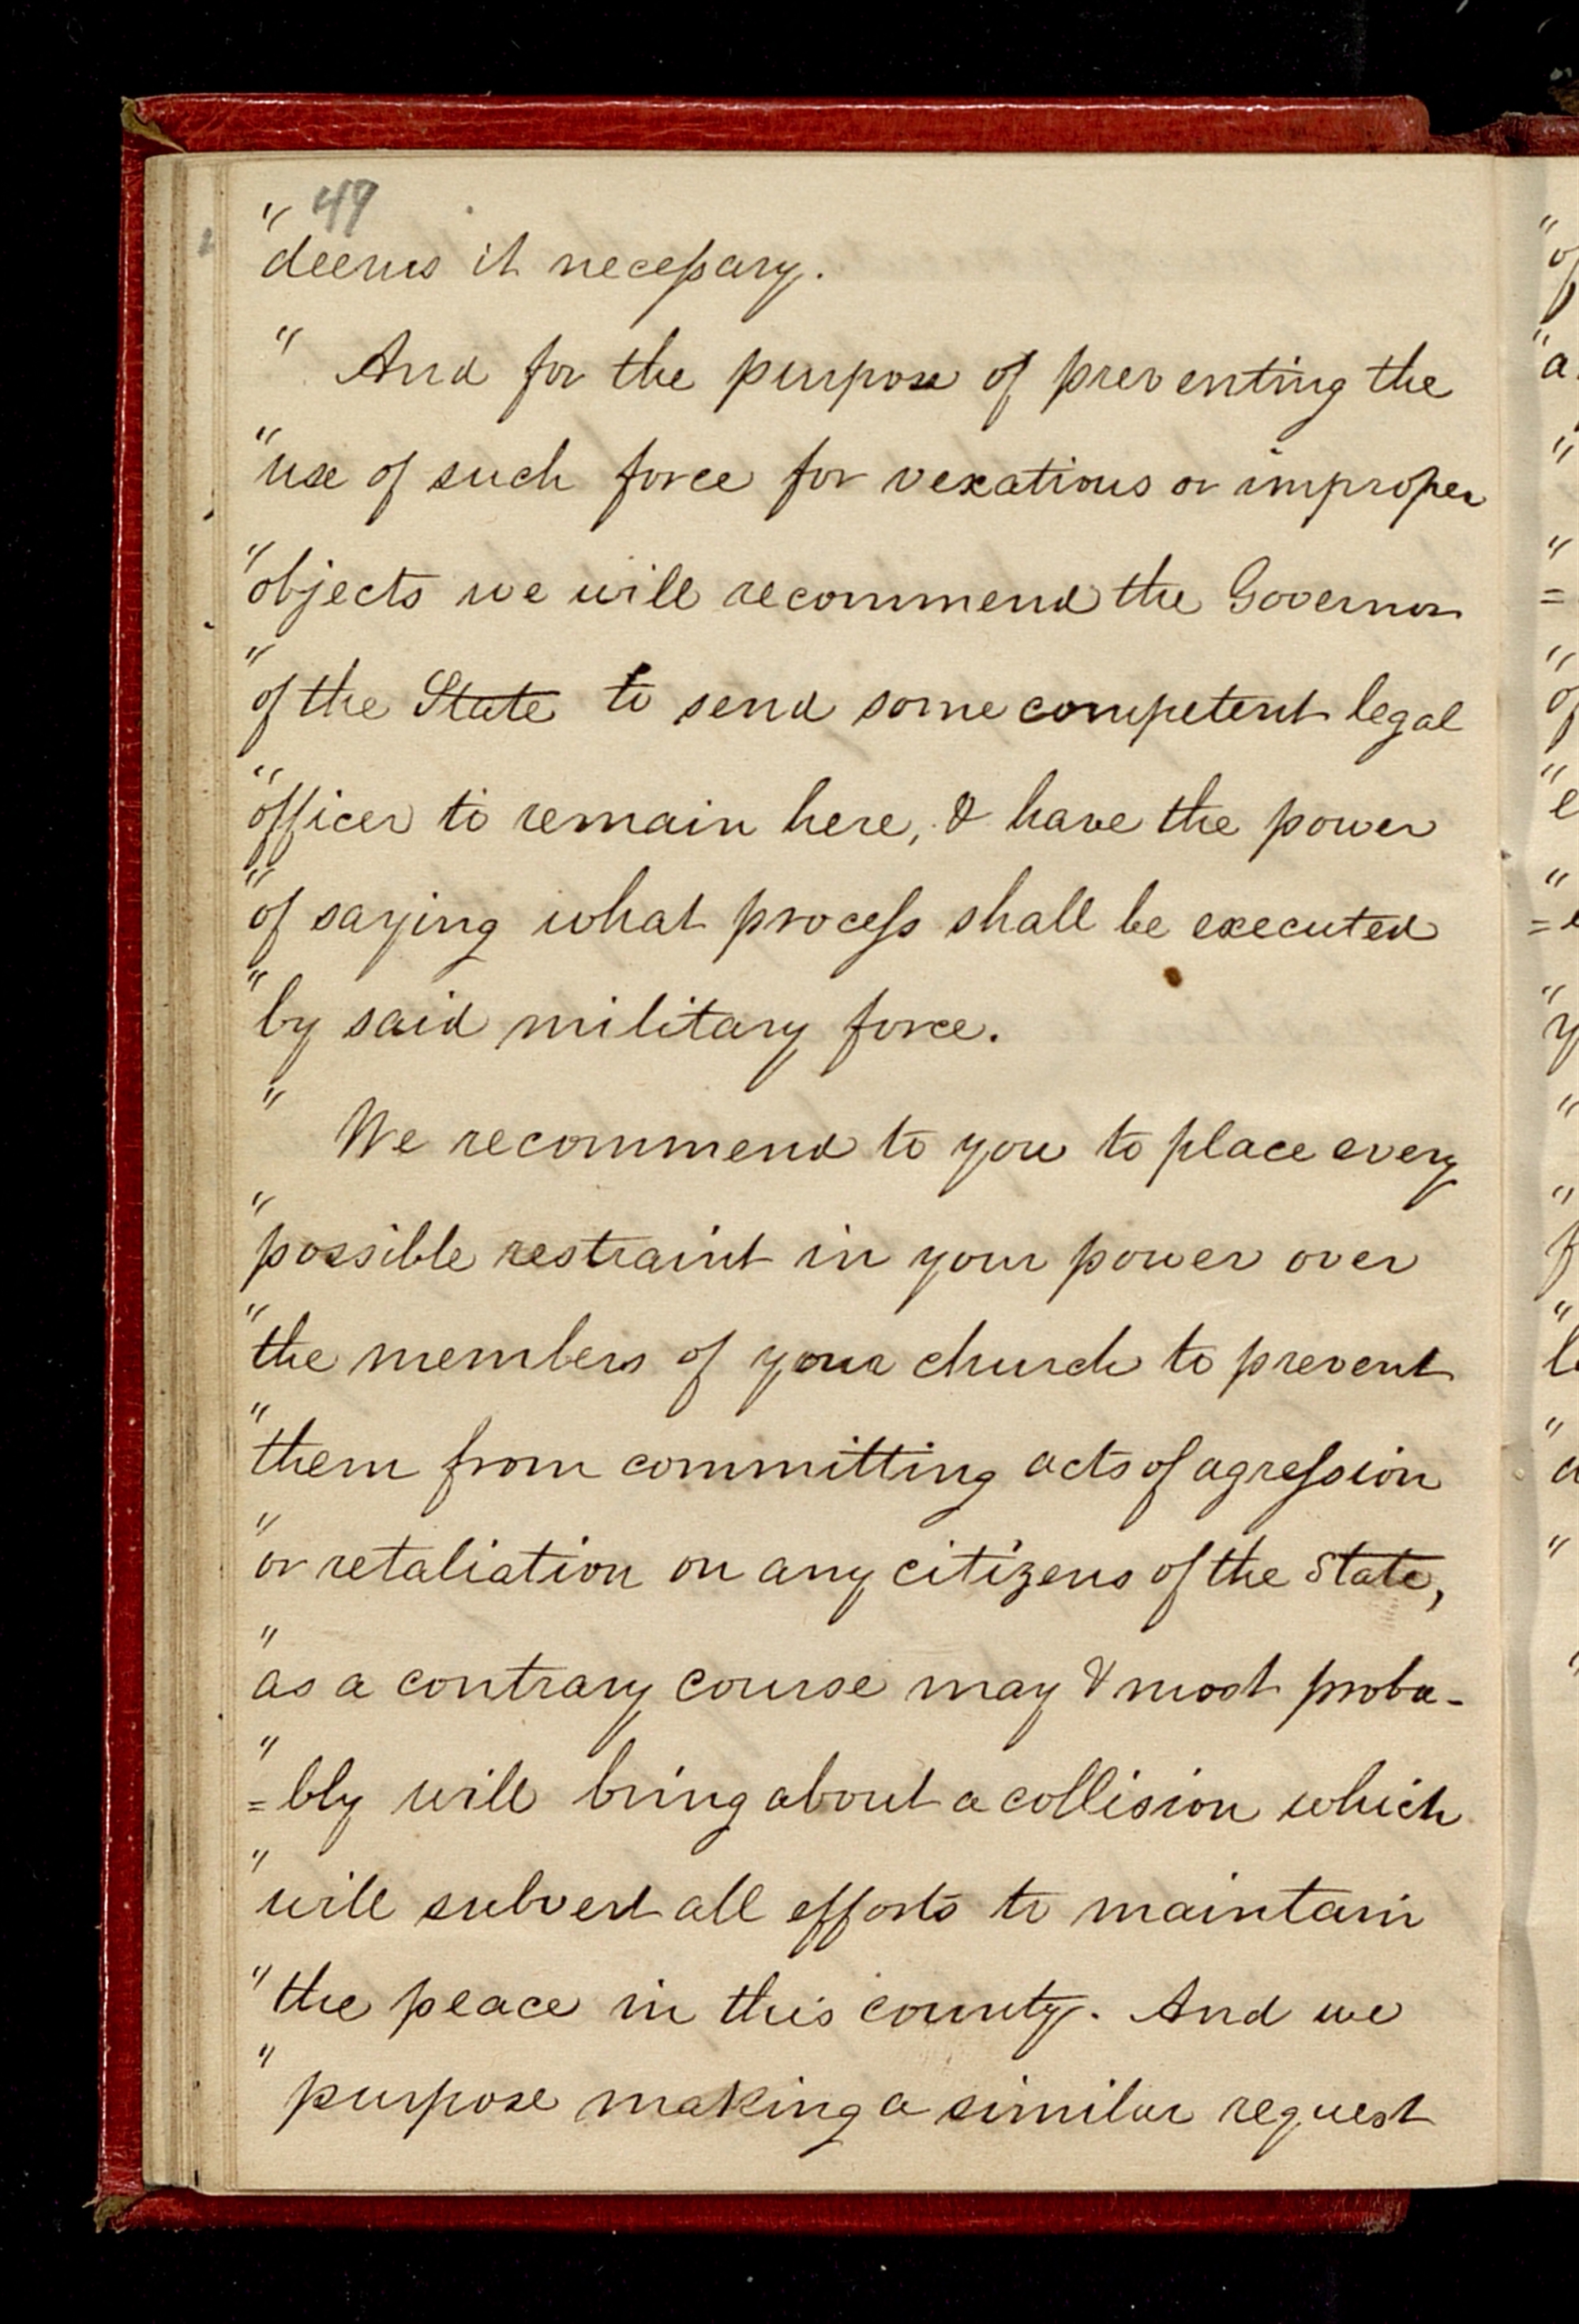 49
"deems it necessary.
" And for the purpose of preventing the
"use of such force for vexatious or improper
"objects we will recommend the Governor
"of the State to send some competent legal
"officer to remain here, & have the power
"of saying what process shall be executed
"by said military force.
" We recommend to you to place every
"possible restraint in your power over
"the members of your church to prevent
"them from committing acts of agression
"or retaliation on any citizens of the State,
"as a contrary course may & most proba-
"=bly will bring about a collision which
"will subvert all efforts to maintain
"the peace in this county. And we
"purpose making a similar request